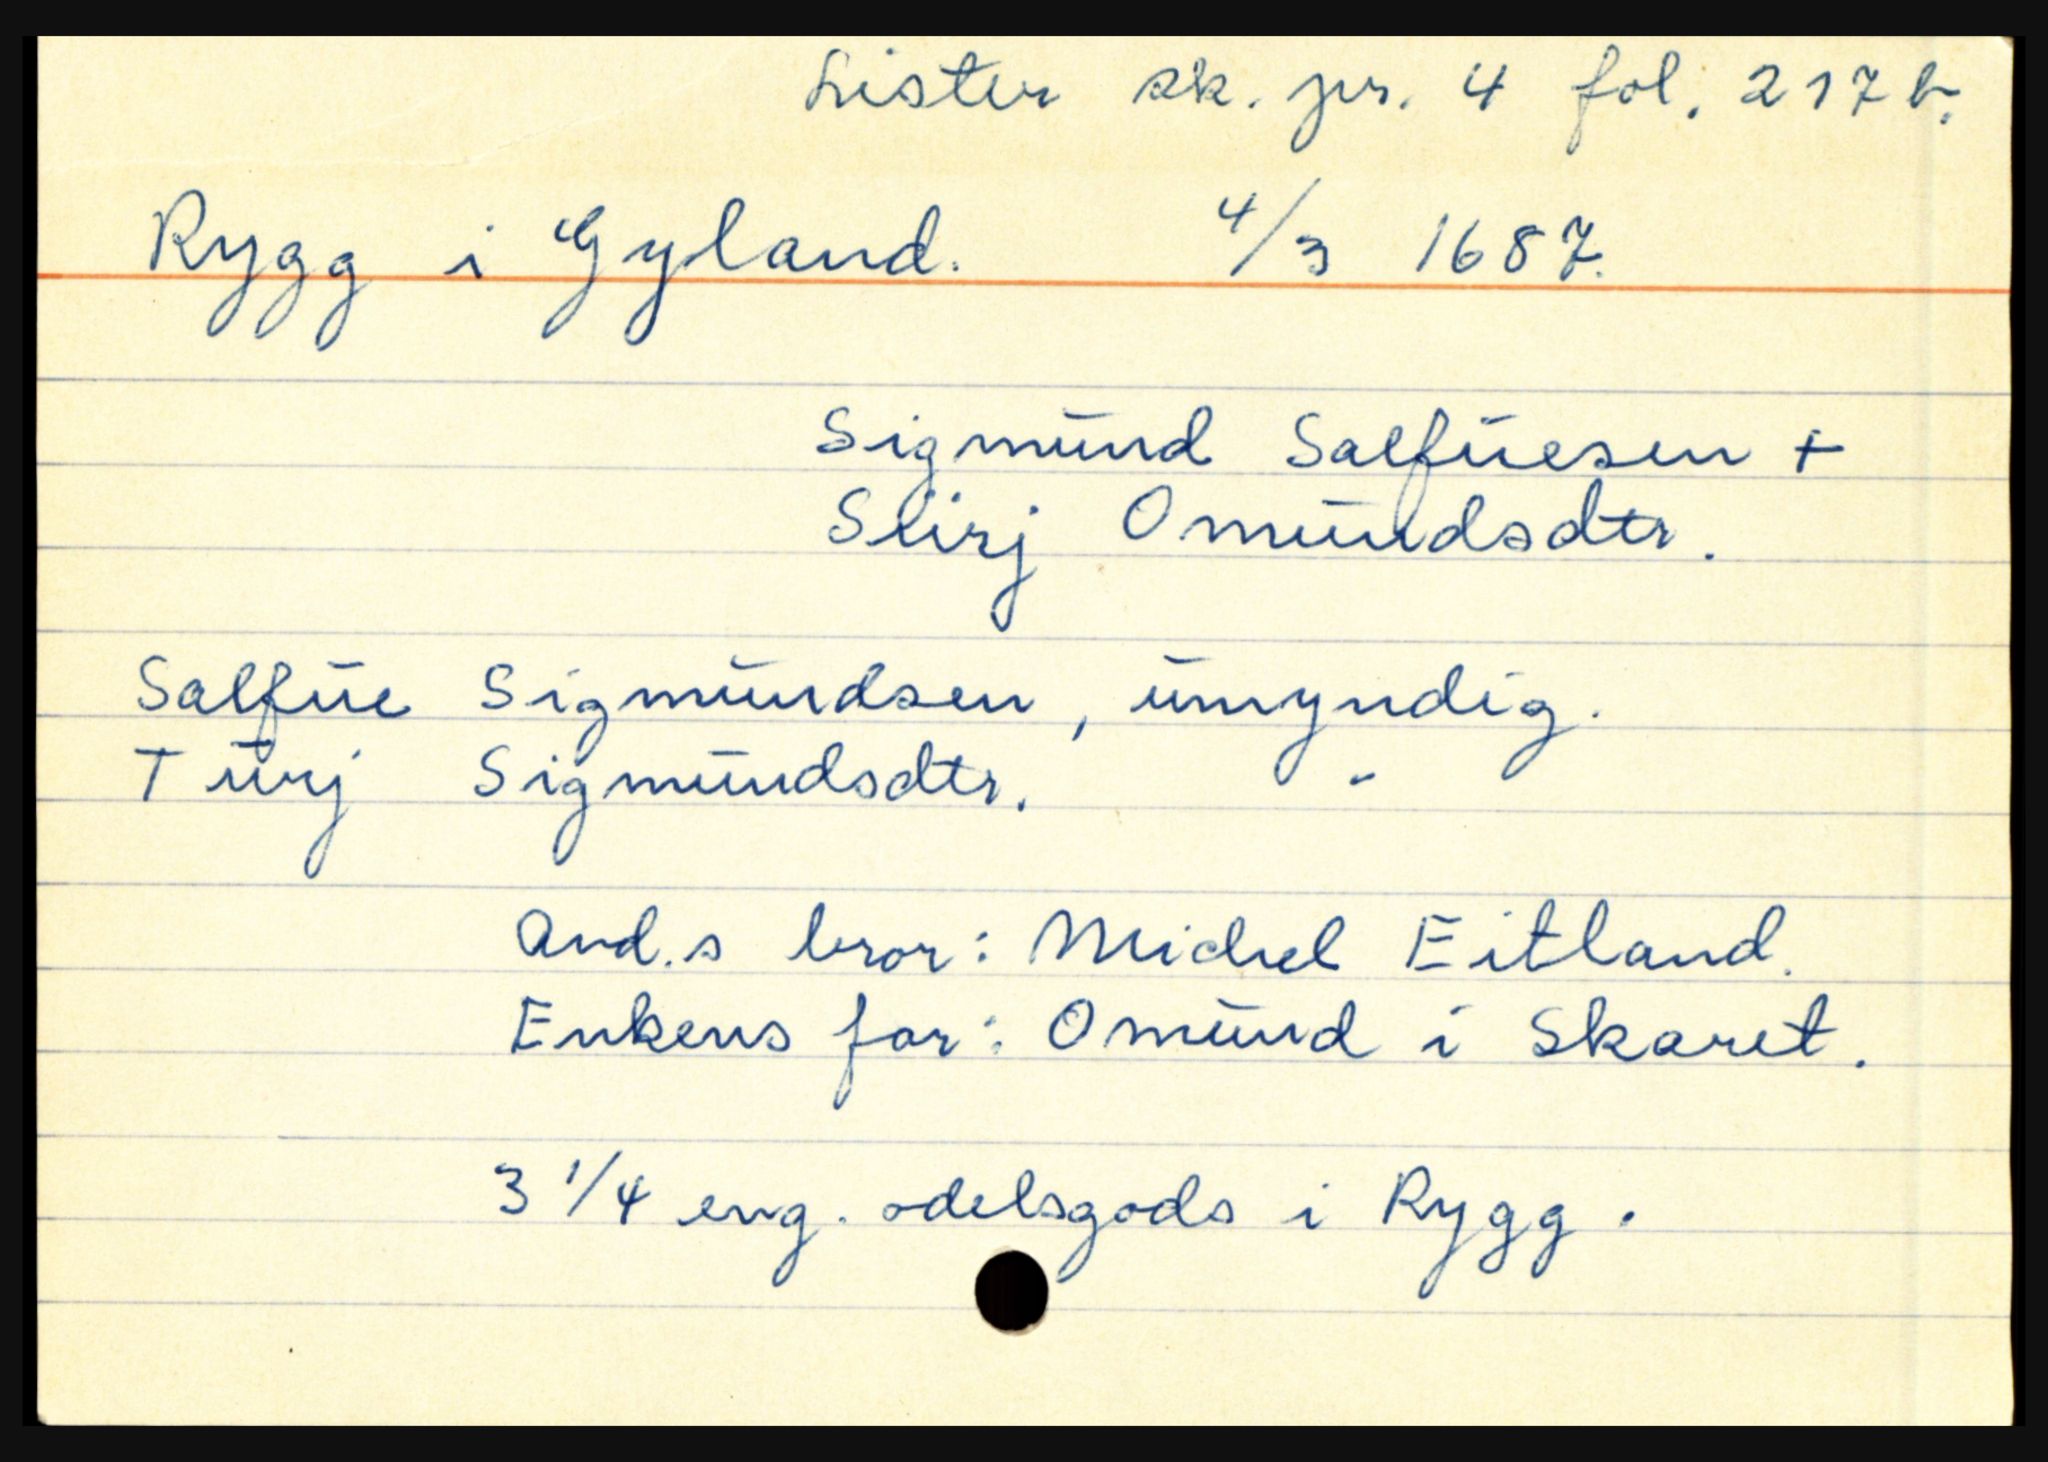 Lister sk. pr. 4 fol. 217 b.
Rygg i Gyland. 4/3 1687.
Sigmund Salfuesen +
Siirj Omundsdtr.
Salfue Sigmundsen, umyndig.
Turj Sigmundsdtr. "
Avd.s bror: Michel Eitland.
Enkens far: Omund i Skaret.
3 1/4 eng. odelsgods i Rygg.